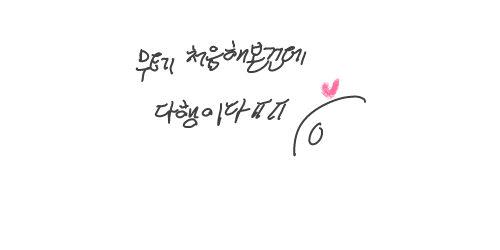 무테 처음해본건데
다행이다ㅠㅠ